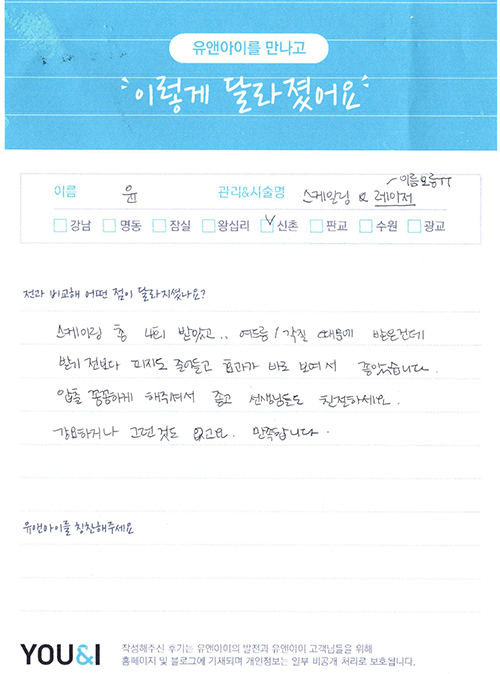 유앤아이를 만나고
이렇게 달라졌어요
이름 윤 관리&시술명 스케일링 & 레이저 이름모름ㅠㅠ
강남 명동 잠실 왕십리 신촌 판교 수원 광교
전과 비교해 어떤 점이 달라지셨나요?
스케일링 총 4회 받았고.. 여드름/각질 때문에 받은건데
받기 전보다 피지도 줄어들고 효과가 바로 보여서 좋았습니다.
압출 꼼꼼하게 해주셔서 좋고 선생님들도 친절하세요.
강요하거나 그런것도 없고요. 만족합니다.
유앤아이를 칭찬해주세요
YOU&I 작성해주신 후기는 유앤아이의 발전과 유앤아이 고객님들을 위해
홈페이지 및 블로그에 기재되며 개인정보는 일부 비공개 처리로 보호됩니다.